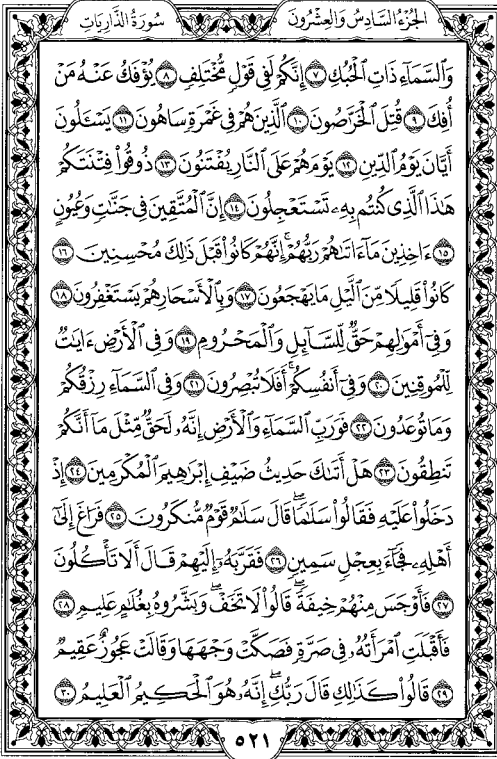 سُورَةُ الذَّارِيَاتِ
الجُزْءُ السَّادِسُ وَالعِشْرُونَ
وَٱلسَّمَآءِ ذَاتِ ٱلْحُبُكِ ٧ إِنَّكُمْ لَفِى قَوْلٍ مُّخْتَلِفٍ ٨ يُؤْفَكُ عَنْهُ مَنْ
أُفِكَ ٩ قُتِلَ ٱلْخَرَّٰصُونَ ١٠ ٱلَّذِينَ هُمْ فِى غَمْرَةٍ سَاهُونَ ١١ يَسْـَٔلُونَ
أَيَّانَ يَوْمُ ٱلدِّينِ ١٢ يَوْمَ هُمْ عَلَى ٱلنَّارِ يُفْتَنُونَ ١٣ ذُوقُوا۟ فِتْنَتَكُمْ
هَٰذَا ٱلَّذِى كُنتُم بِهِۦ تَسْتَعْجِلُونَ ١٤ إِنَّ ٱلْمُتَّقِينَ فِى جَنَّٰتٍ وَعُيُونٍ
١٥ ءَاخِذِينَ مَآ ءَاتَىٰهُمْ رَبُّهُمْ ۚ إِنَّهُمْ كَانُوا۟ قَبْلَ ذَٰلِكَ مُحْسِنِينَ ١٦
كَانُوا۟ قَلِيلًا مِّنَ ٱلَّيْلِ مَا يَهْجَعُونَ ١٧ وَبِٱلْأَسْحَارِ هُمْ يَسْتَغْفِرُونَ ١٨
وَفِىٓ أَمْوَٰلِهِمْ حَقٌّ لِّلسَّآئِلِ وَٱلْمَحْرُومِ ١٩ وَفِى ٱلْأَرْضِ ءَايَٰتٌ
لِّلْمُوقِنِينَ ٢٠ وَفِىٓ أَنفُسِكُمْ ۚ أَفَلَا تُبْصِرُونَ ٢١ وَفِى ٱلسَّمَآءِ رِزْقُكُمْ
وَمَا تُوعَدُونَ ٢٢ فَوَرَبِّ ٱلسَّمَآءِ وَٱلْأَرْضِ إِنَّهُۥ لَحَقٌّ مِّثْلَ مَآ أَنَّكُمْ
تَنطِقُونَ ٢٣ هَلْ أَتَىٰكَ حَدِيثُ ضَيْفِ إِبْرَٰهِيمَ ٱلْمُكْرَمِينَ ٢٤ إِذْ
دَخَلُوا۟ عَلَيْهِ فَقَالُوا۟ سَلَٰمًا ۖ قَالَ سَلَٰمٌ قَوْمٌ مُّنكَرُونَ ٢٥ فَرَاغَ إِلَىٰٓ
أَهْلِهِۦ فَجَآءَ بِعِجْلٍ سَمِينٍ ٢٦ فَقَرَّبَهُۥٓ إِلَيْهِمْ قَالَ أَلَا تَأْكُلُونَ
٢٧ فَأَوْجَسَ مِنْهُمْ خِيفَةً ۖ قَالُوا۟ لَا تَخَفْ ۖ وَبَشَّرُوهُ بِغُلَٰمٍ عَلِيمٍ ٢٨
فَأَقْبَلَتِ ٱمْرَأَتُهُۥ فِى صَرَّةٍ فَصَكَّتْ وَجْهَهَا وَقَالَتْ عَجُوزٌ عَقِيمٌ
٢٩ قَالُوا۟ كَذَٰلِكِ قَالَ رَبُّكِ ۖ إِنَّهُۥ هُوَ ٱلْحَكِيمُ ٱلْعَلِيمُ ٣٠
٥٢١